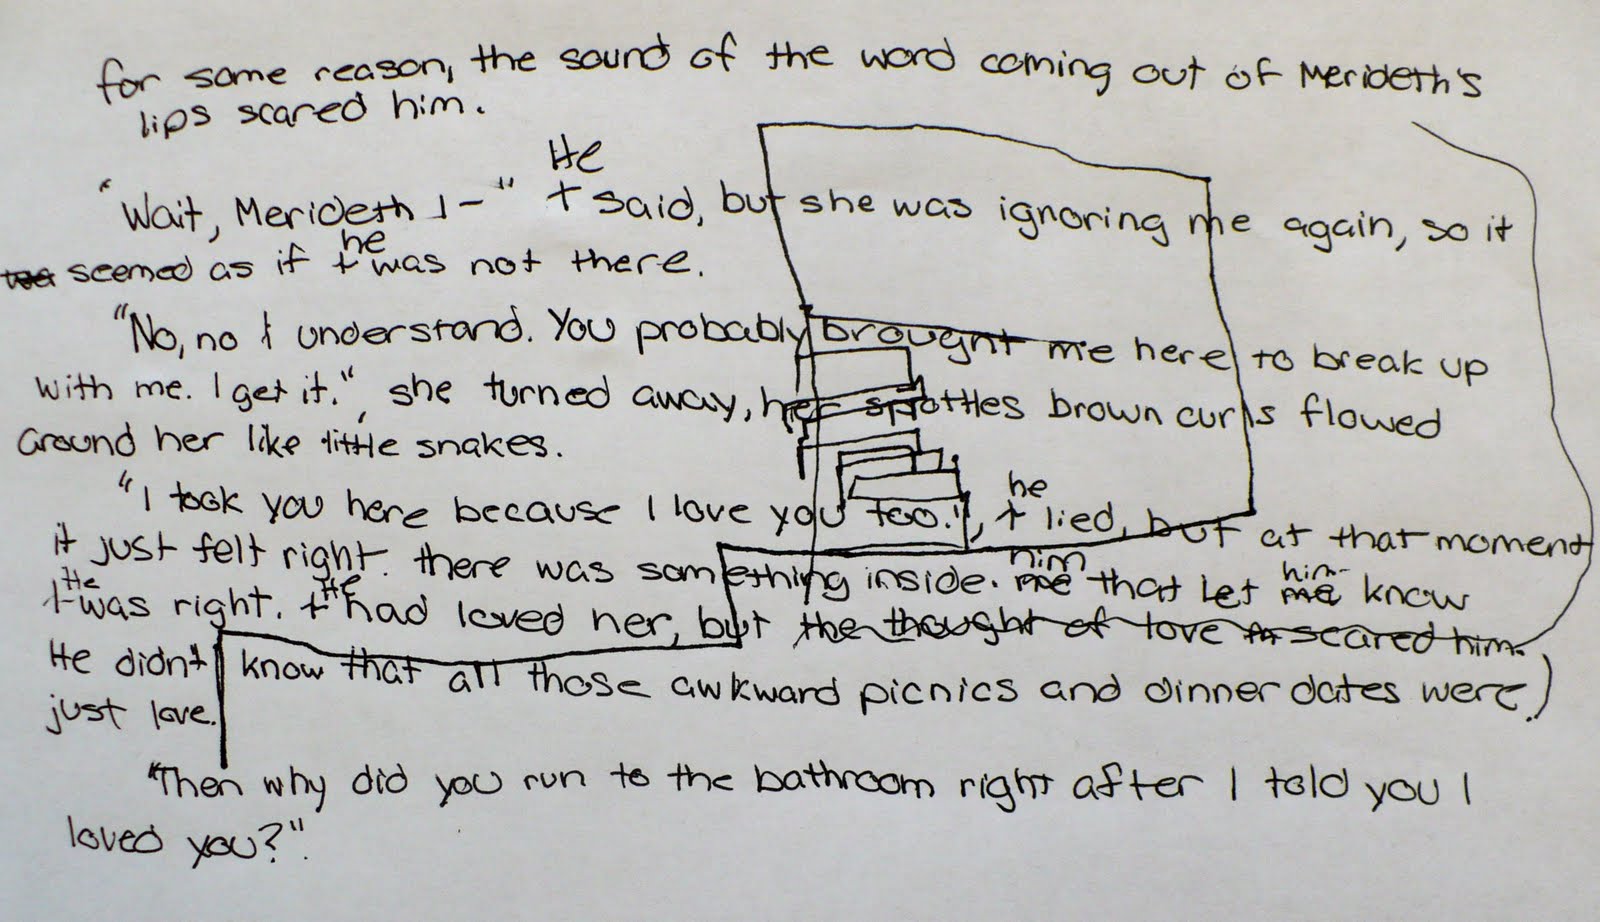 for some reason, the sound of the word coming out of Merideth's
lips scared him.
He
"Wait, Merideth I-" I said, but she was ignoring me again, so it
he
seemed as if I was not there.
"No, no I understand. You probably brought me here to break up
with me. I get it.", she turned away, her spottles brown curls flowed
around her like little snakes.
he
"I took you here because I love you too.", I lied, but at that moment
him him
it just felt right. there was something inside. me that let me know
He He
I was right. I had loved her, but the thought of love scared him.
He didn't know that all those awkward picnics and dinner dates were)
just love.
"Then why did you run to the bathroom right after I told you I
loved you?".